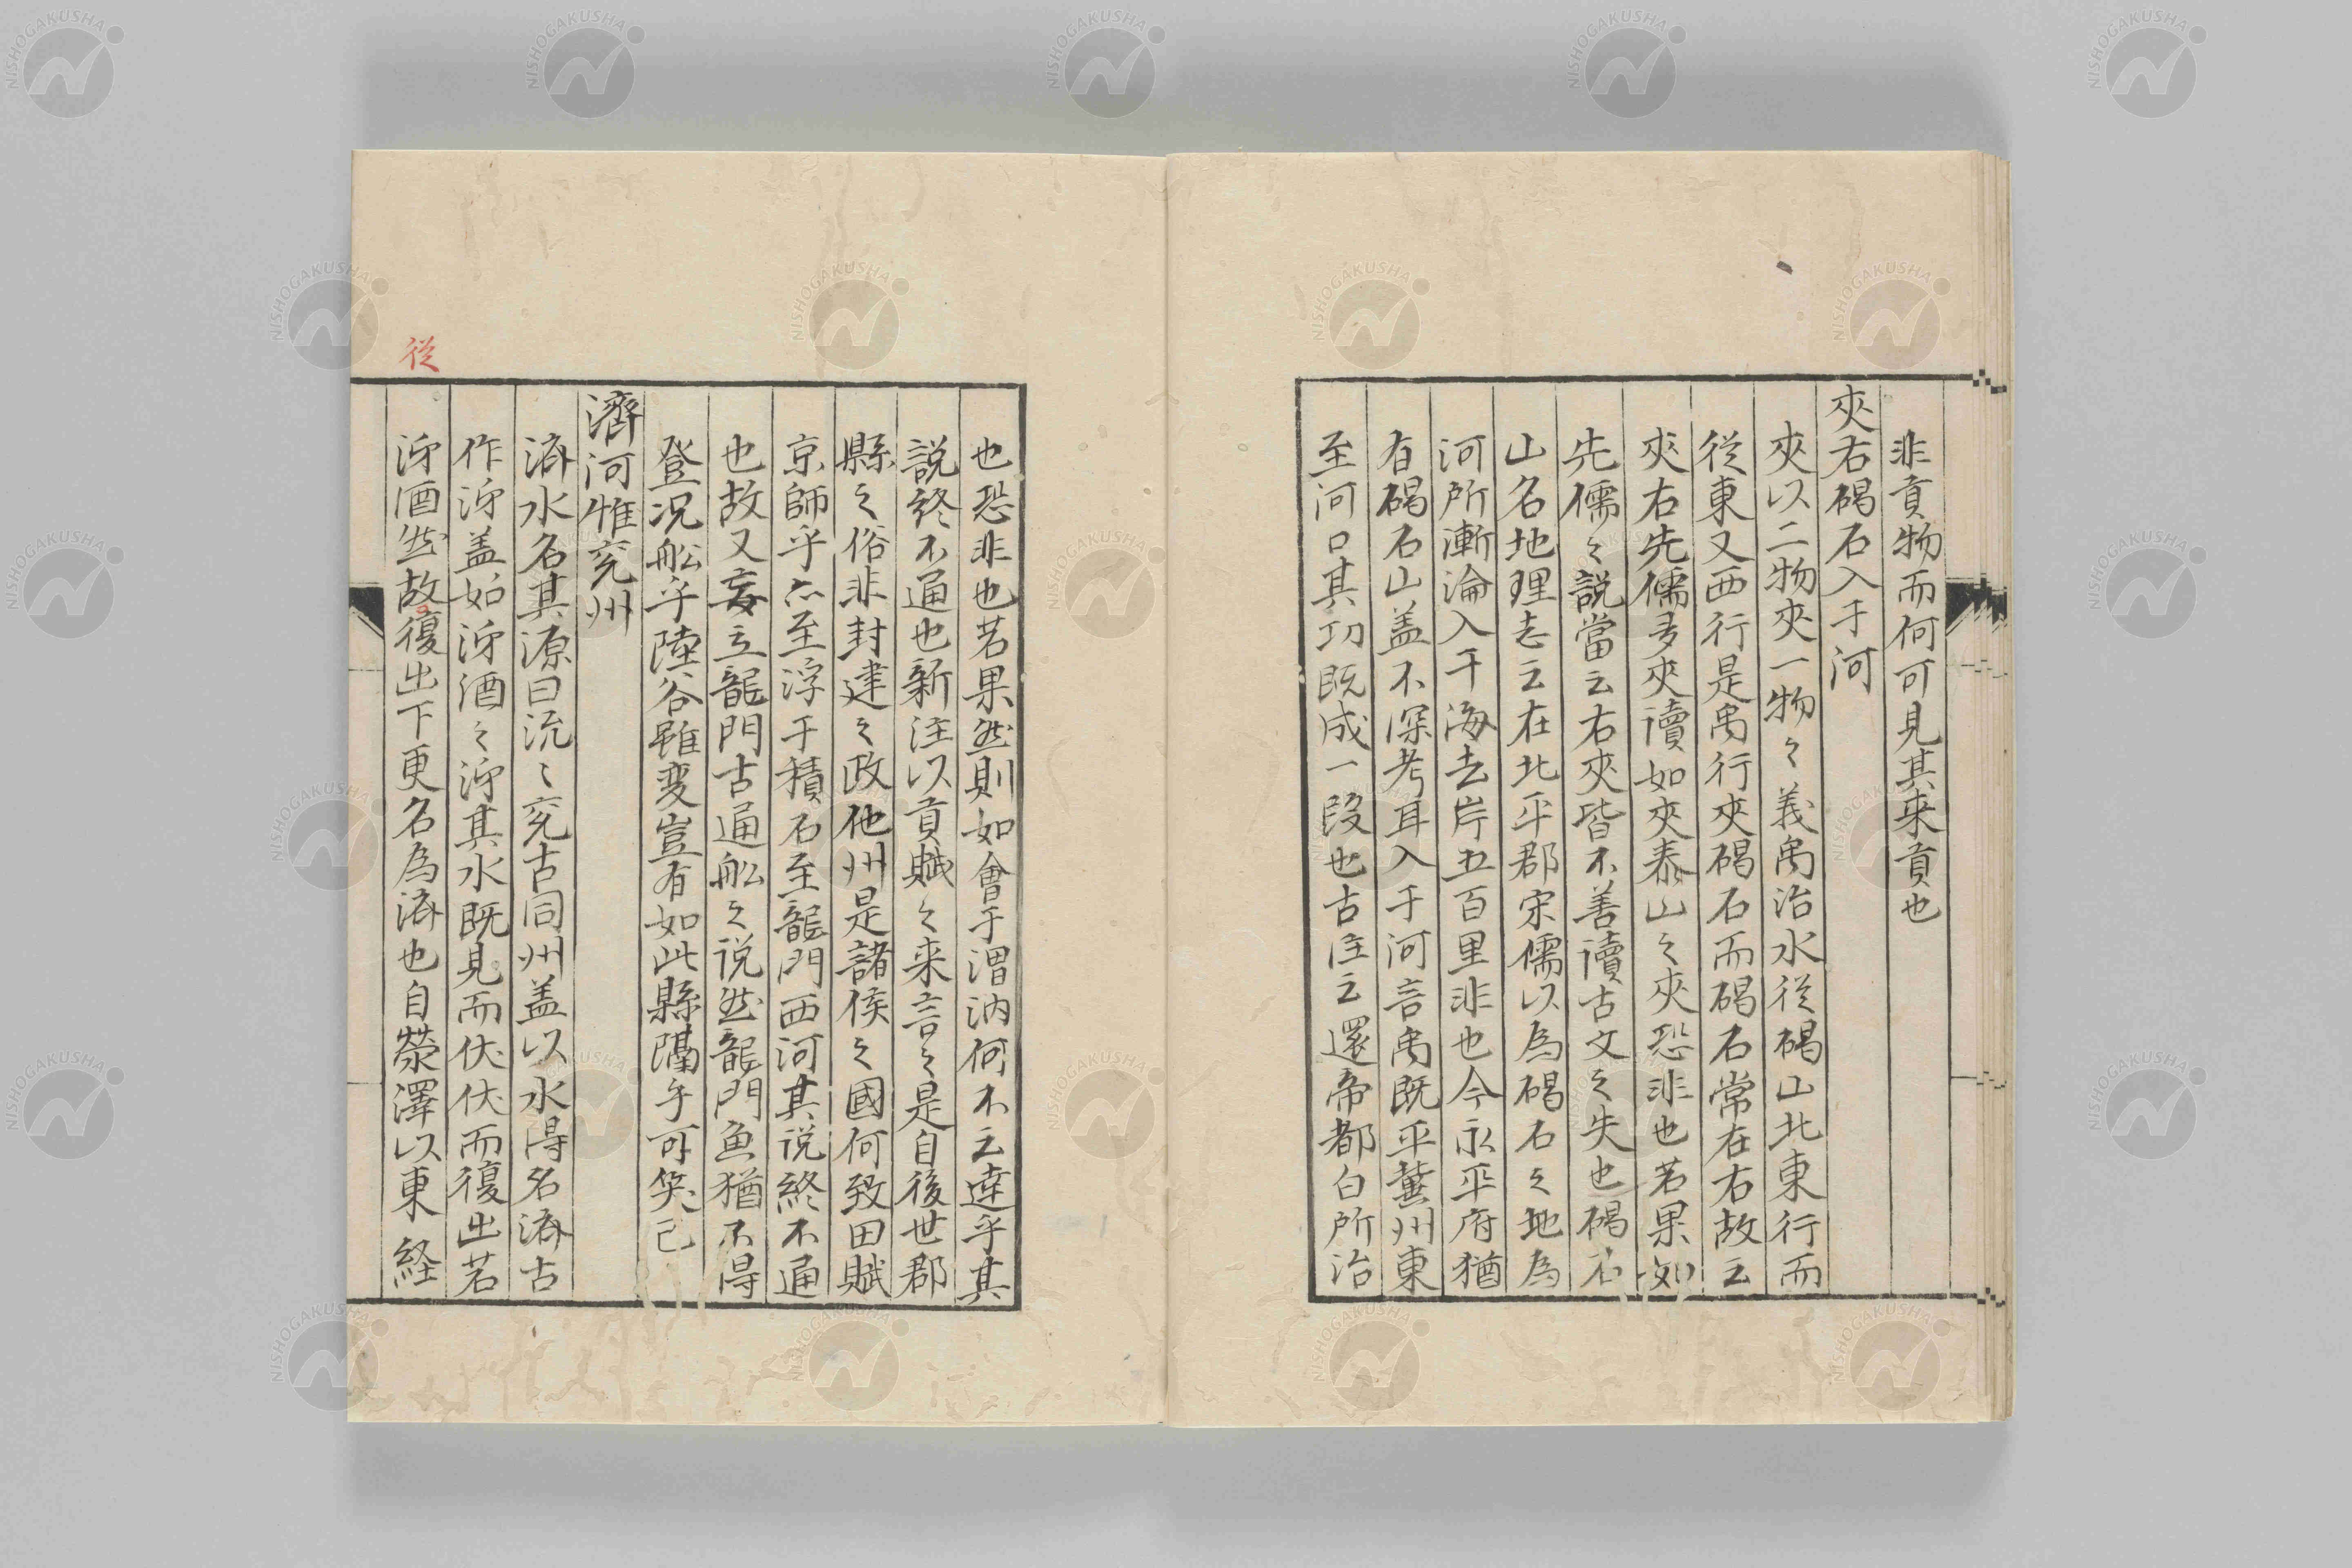 非貢物而何可見其来貢也
夾右碣石入于河
夾以二物夾一物々義禹治水從碣山北東行而
從東又西行是禹行夾碣石而碣石常在右故云
夾右先儒多夾讀如夾泰山之夾恐非也若果如
先儒之說當云右夾皆不善讀古文之失也碣石
山名地理志云在北平郡宋儒以為碣石之地為
河所漸淪入于海去岸五百里非也今永平府猶
有碣石山盖不深考耳入于河言禹既平冀州東
至河口其功既成一段也古注云還帝都白所治
也恐非也若果然則如會于渭汭何不云達乎其
說終不通也新注以貢賦之来言之是自後世郡
縣之俗非封建之政他州是諸侯之國何致田賦
京師乎亦至浮于積石至龍門西河其説終不通
也故又妄立龍門古通舩之説然龍門魚猶不得
登况舩乎陸谷雖変豈有如此縣隔乎可笑已
濟河惟兖州
済水名其源曰沇々兖古同州盖以水得名済古
作泲盖如泲酒之泲其水既見而伏伏而復出若
泲酒然故復出下更名為済也自滎澤以東経
從
NISHOGAKUSHA